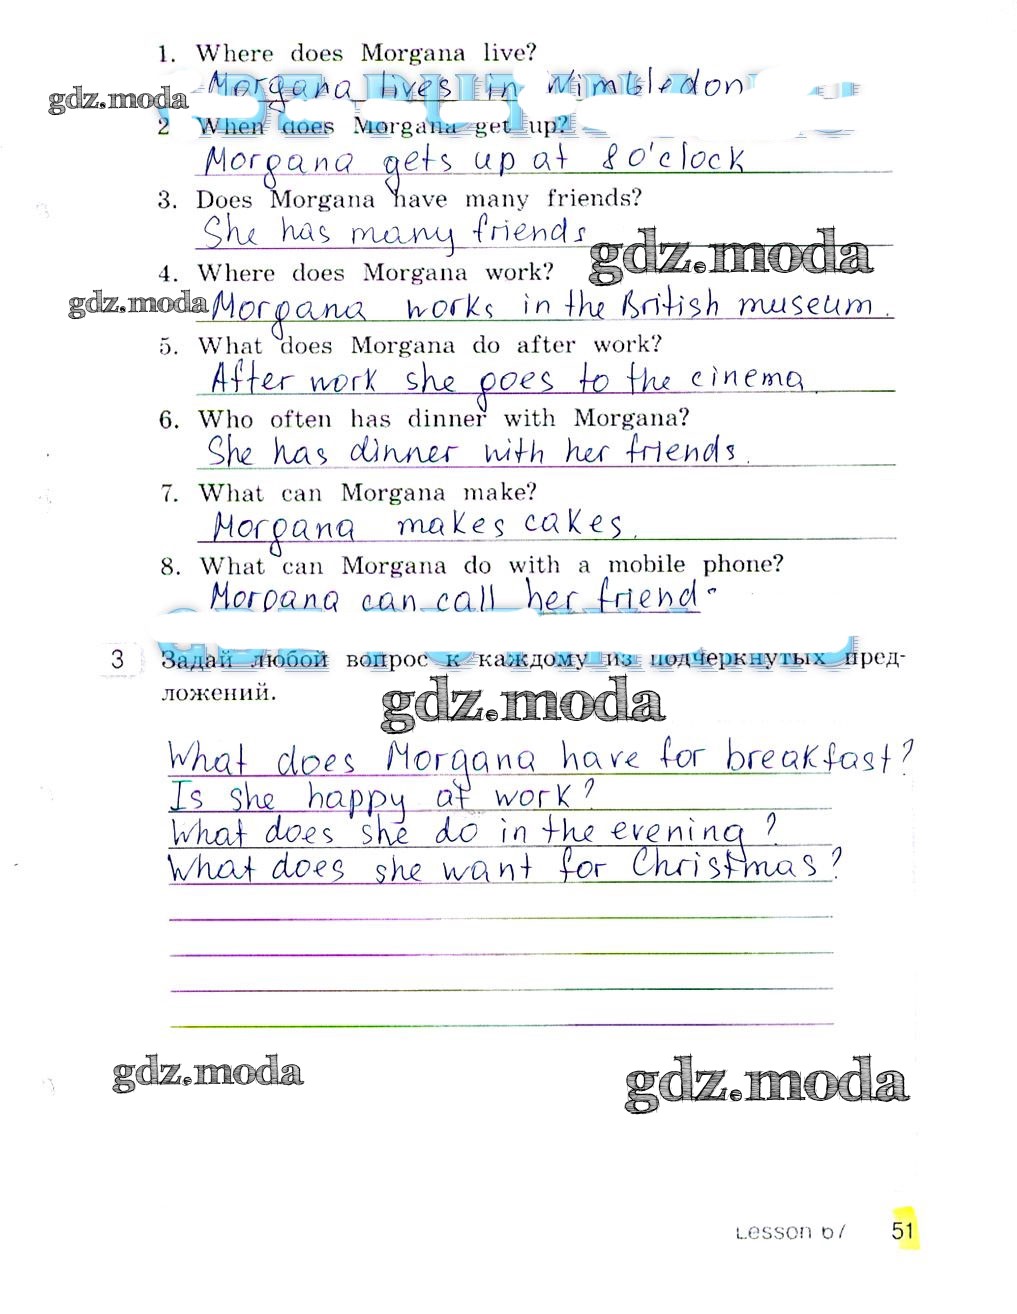 1. Where does Morgana live?
Morgana lives in Wimbledon
gdz.moda
2 When does Morgana get up?
Morgana gets up at 8 o'clock
3. Does Morgana have many friends?
She has many friends
gdz.moda
4. Where does Morgana work?
gdz.moda
Morgana works in the British museum.
5. What does Morgana do after work?
After work she goes to the cinema.
6. Who often has dinner with Morgana?
She has dinner with her friends.
7. What can Morgana make?
Morgana makes cakes.
8. What can Morgana do with a mobile phone?
Morgana can call her friend.
3 Задай любой вопрос к каждому из подчеркнутых пред-
ложений.
gdz.moda
What does Morgana have for breakfast?
Is she happy at work?
What does she do in the evening?
What does she want for Christmas?
gdz.moda
gdz.moda
Lesson 67 51